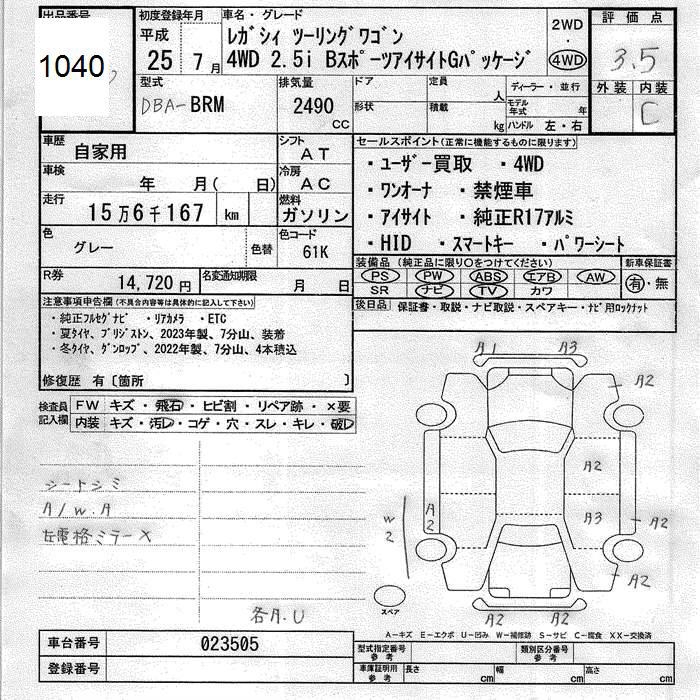 出品番号
1040
初度登録年月
平成
25 7月
車名・グレード
レガシィ ツーリングワゴン
4WD 2.5i BスポーツアイサイトGパッケージ
2WD
・
4WD
評価点
3.5
外装 内装
C
型式
DBA-BRM
排気量
2490
CC
ドア
形状
定員
人
積載
kg
ディーラー・並行
モデル年式 年
ハンドル 左・右
車歴
自家用
シフト
AT
車検
年 月( 日)
冷房
AC
走行
15万6千167 km
燃料
ガソリン
色
グレー
色替
色コード
61K
R券
14,720円
名変通知期限
月 日
セールスポイント(正常に機能するものに限ります)
・ユーザー買取 ・4WD
・ワンオーナ ・禁煙車
・アイサイト ・純正R17アルミ
・HID ・スマートキー ・パワーシート
装備品 (純正品に限り○をつけてください)
新車保証書
PS PW ABS エアB AW
SR ナビ TV カワ
有・無
後日品 保証書・取説・ナビ取説・スペアキー・ナビ用ロックナット
注意事項申告欄(不具合内容等は具体的に記入して下さい)
・純正フルセグナビ ・リアカメラ ・ETC
・夏タイヤ、ブリジストン、2023年製、7分山、装着
・冬タイヤ、ダンロップ、2022年製、7分山、4本積込
修復歴 有〔箇所 〕
検査員記入欄
FW キズ・飛石・ヒビ割・リペア跡・×要
内装 キズ・汚れ・コゲ・穴・スレ・キレ・破れ
シートシミ
A/W.A
左電格ミラーX
各A.U
A1 A3
A2
A2
A3
A2
A2
W2
A2
A2 A2
スペア
A-キズ E-エクボ U-凹み W-補修跡 S-サビ C-腐食 XX-交換済
車台番号 023505
登録番号
型式指定番号
参考
類別区分番号
参考
車庫証明用
参考
長さ cm
幅 cm
高さ cm